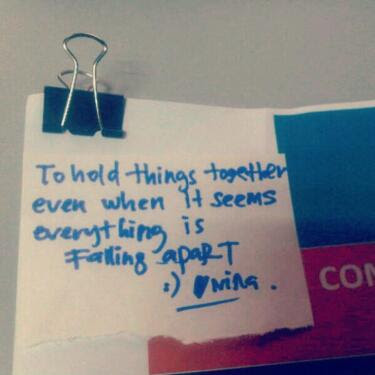 To hold things together
even when it seems
everything is
Falling apart
:) ♥nina.
CON